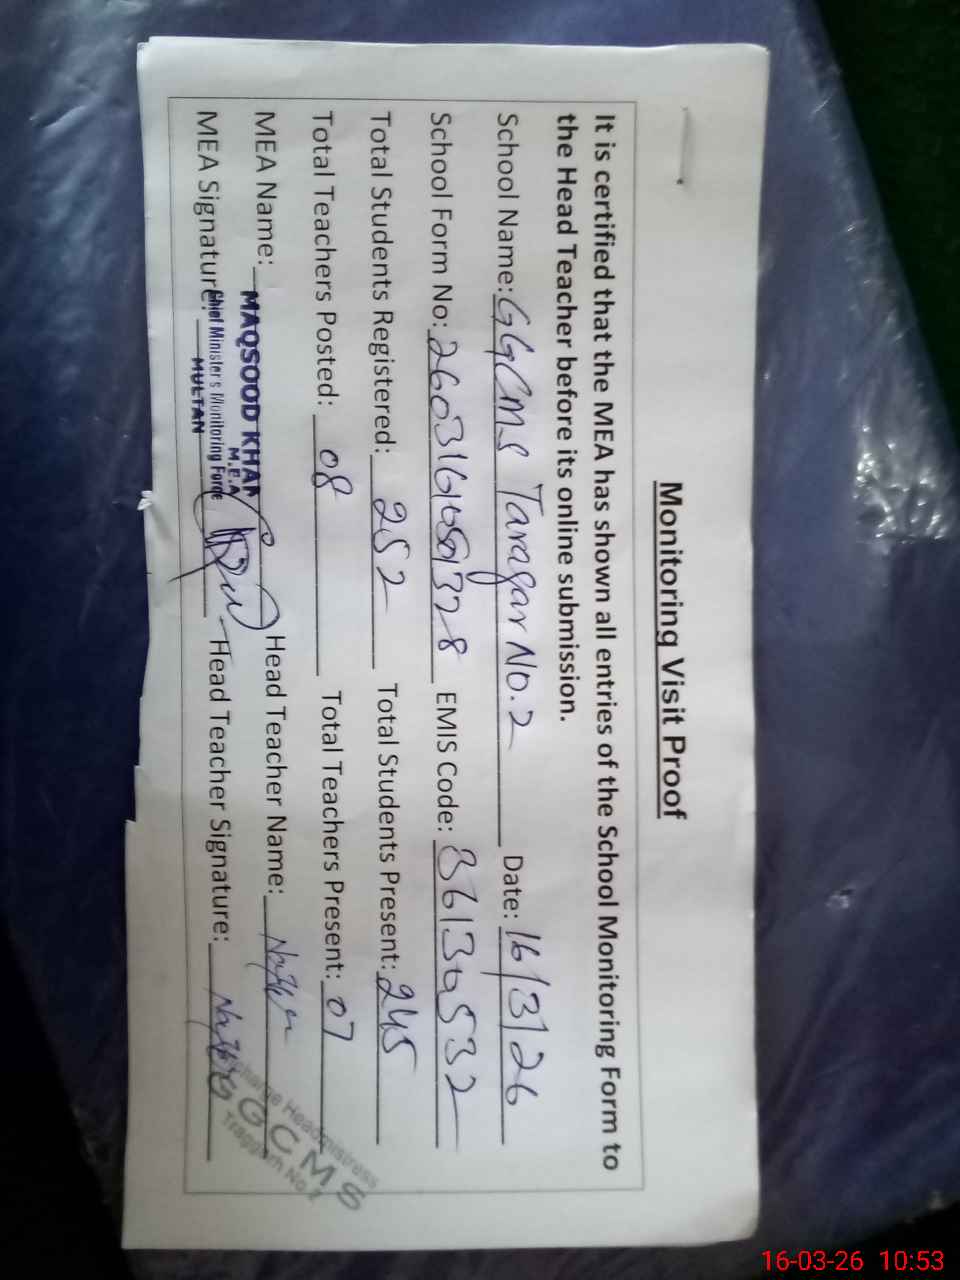 Monitoring Visit Proof
It is certified that the MEA has shown all entries of the School Monitoring Form to
the Head Teacher before its online submission.
School Name: GGCMS Taragar No.2 Date: 16/3/26
School Form No: EMIS Code:
Total Students Registered: 252 Total Students Present: 245
Total Teachers Posted: 08 Total Teachers Present: 07
MEA Name: MAQSOOD KHAN Head Teacher Name:
M.E.A
MEA Signature: Chief Minister's Monitoring Force Head Teacher Signature:
MULTAN
Incharge Headmistress
GGCMS
Traggarh No.2
16-03-26 10:53